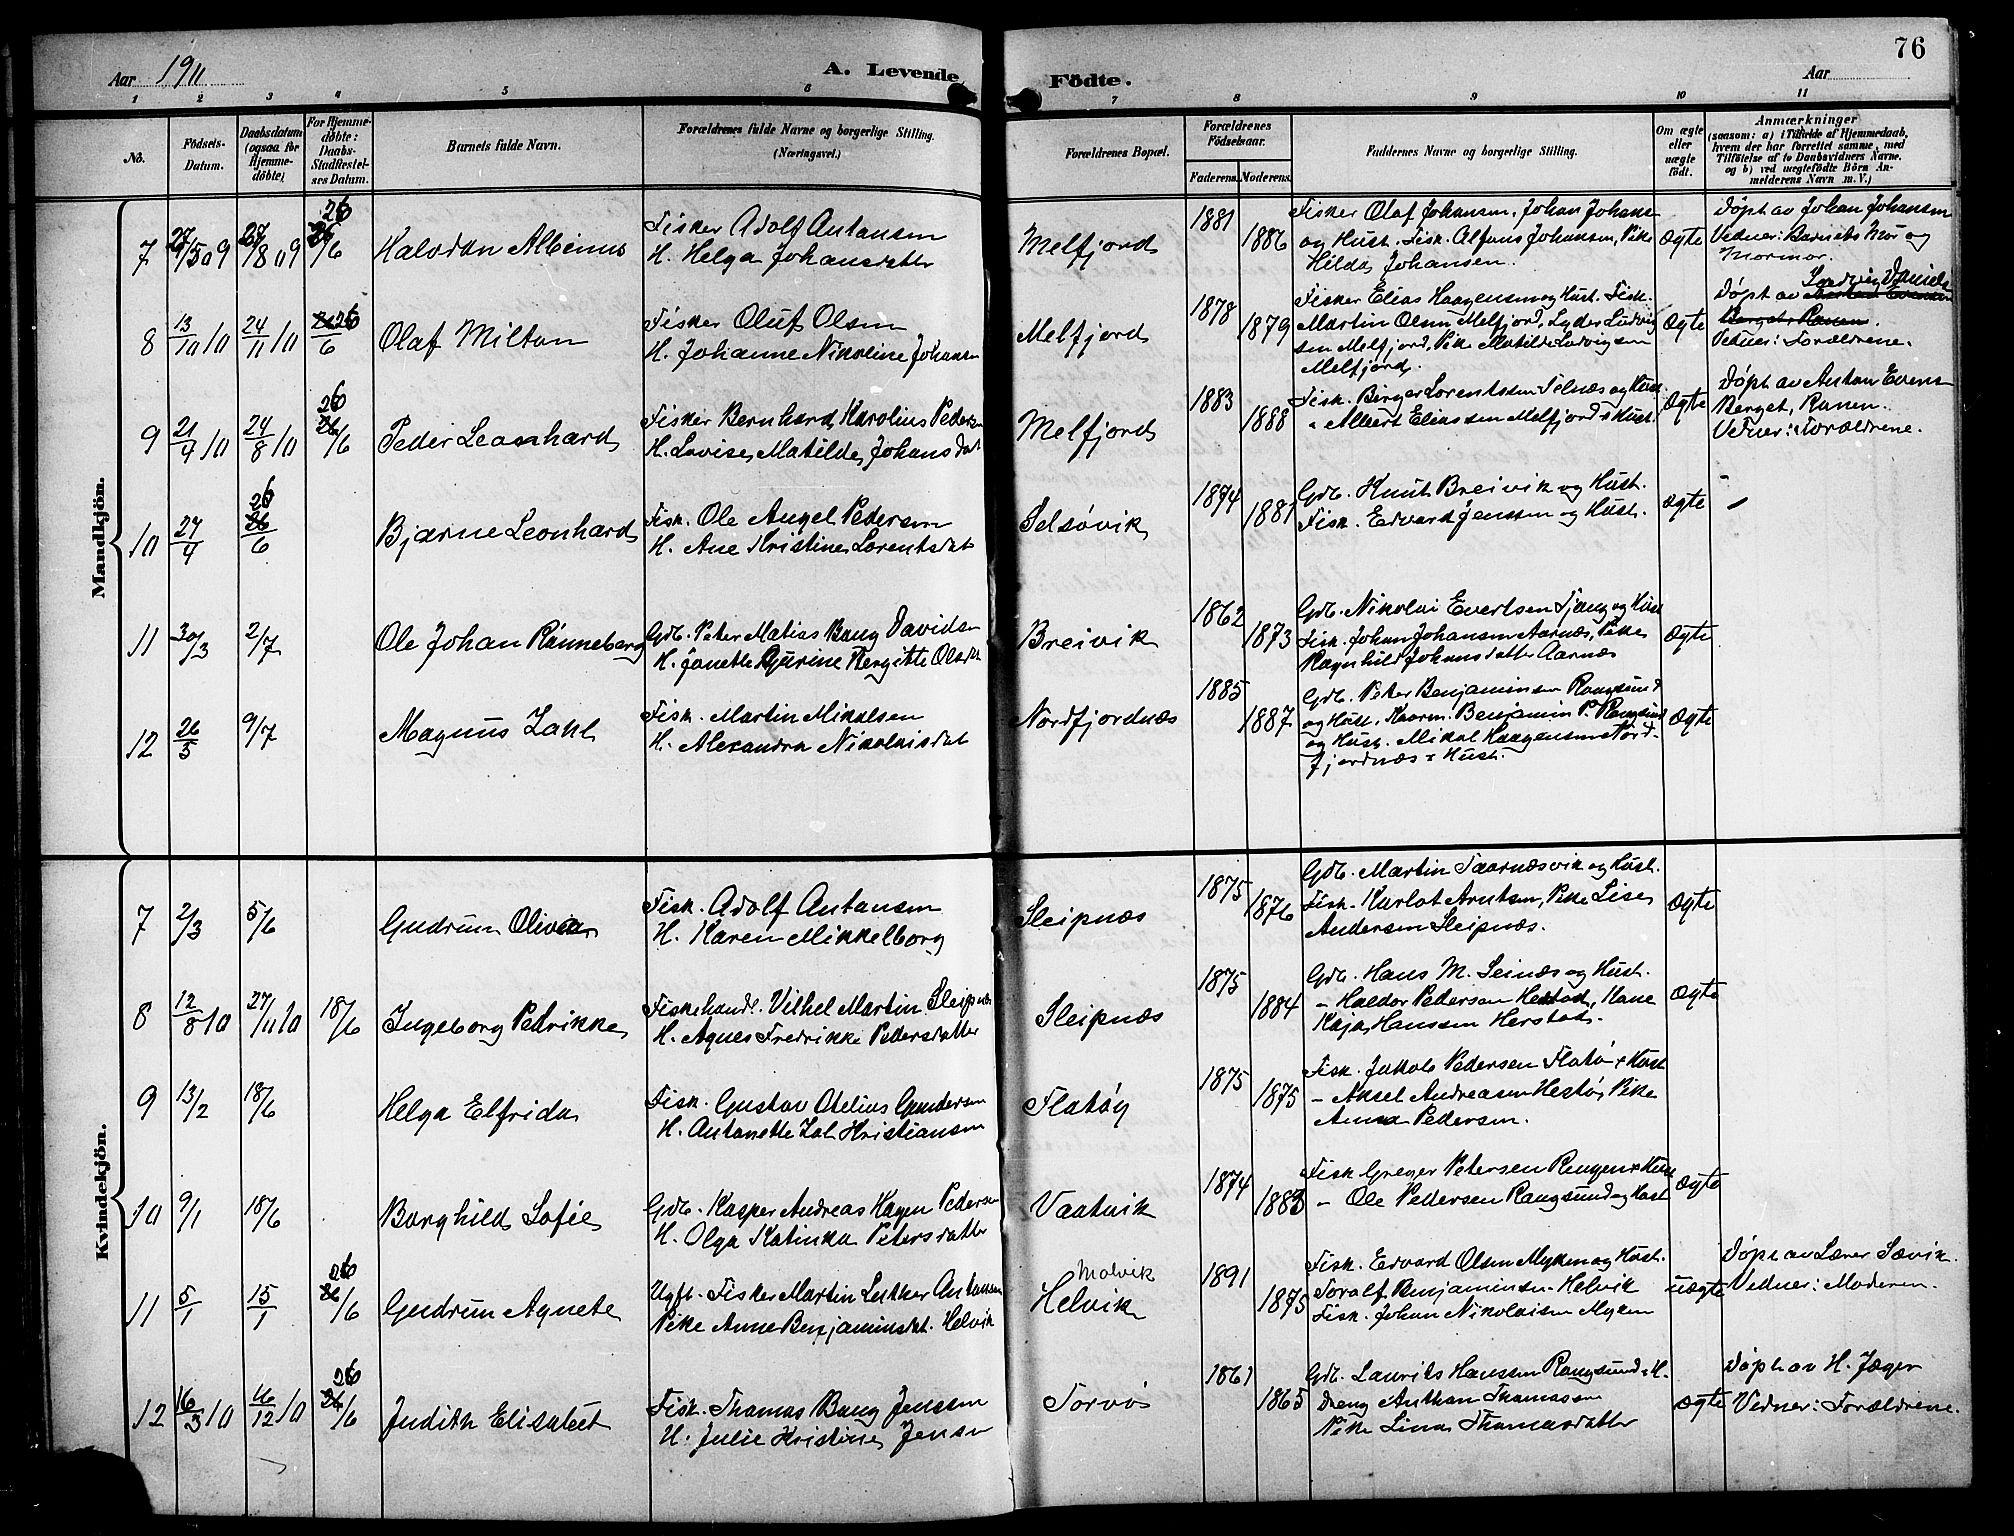 76
Aar 1911
A. Levende Födte.
Aar
1 2 3 4 5 6 7 8 9 10 11
No.
Födsels-Datum.
Daabsdatum (ogsaa for Hjemme-döbte)
For Hjemme-döbte: Daabs-Stadfæstel-ses Datum.
Barnets fulde Navn.
Forældrenes fulde Navne og borgerlige Stilling. (Næringsvei.)
Forældrenes Bopæl.
Forældrenes Födselsaar.
Faderens. Moderens.
Faddernes Navne og borgerlige Stilling.
Om ægte eller uægte födt.
Anmærkninger
(saasom: a) i Tilfælde af Hjemmedaab,
hvem der har forrettet samme, med
Tilföielse af to Daabsvidners Navne.
og b) ved uægtefödte Börn An-
melderens Navn m.V.)
Mandkjön.
7 27/5 09 27/8 09 26/6 Halvdan Albinus
Fisker Adolf Antonsen
H. Helga Johansdatter
Melfjord 1881 1886
Fisker Olaf Johansen, Johan Johans
og Hust. Fisk. Alfons Johansen, Pike
Hilda Johansen.
Ægte
Døpt av Johan Johansen
Vidner: Barnets Mor og
Mormor.
8 13/10 10 24/11 10 26/6 Olaf Milton
Fisker Oluf Olsen
H. Johanne Nikoline Johansn
Melfjord 1878 1879
Fisker Elias Haagensen og Hust. Fisk.
Martin Olsen Melfjord, Lyder Ludvig
sen Melfjord, Pike Matilde Ludvigsen
Melfjord.
Ægte
Døpt av Ludvig Daniels
Vidner: Forældrene.
9 21/4 10 24/8 10 26/6 Peder Leonhard
Fisker Bernhard Karolius Peders
H. Lovise Matilde Johansdat
Melfjord 1883 1888
Fisk. Birger Lorentssen Selnæs og Hust.
" Albert Eliassen Melfjord & Hust.
Ægte
Døpt av Anton Evens
Berget, Ranen.
Vidner: Forældrene.
10 27/4 26/6 Bjarne Leonhard
Fisk. Ole Angel Pedersen
H. Ane Kristine Lorentsdat
Selsøvik 1874 1881
Gdb. Knut Breivik og Hust.
Fisk. Edvard Jenssen og Hust.
ægte
11 30/3 2/7 Ole Johan Rønneberg
Gdb. Peter Matias Baug Davidsn
H. Janette Gurine Bergitte Olsdt
Breivik 1862 1873
Gdb. Nikolai Evertsen Tjong og Hust
Fisk. Johan Johansen Aarnæs, Pike
Ragnhild Johansdatter Aarnæs
Ægte
12 26/5 9/7 Magnus Zahl
Fisk. Martin Mikalsen
H. Alexandra Nikolaisdat
Nordfjordnæs 1885 1887
Gdb. Peter Benjaminsen Rangsund
og Hust. Kaarm. Benjamin P. Rangsund
og Hust. Mikal Haagensen Nord-
fjordnæs & Hust.
Ægte
Kvindekjön.
7 2/3 5/6 Gudrun Olivia
Fisk. Adolf Antonsen
H. Karen Mikkelborg
Sleipnæs 1875 1876
Gdb. Martin Taarnæsvik og Hust.
Fisk. Karlot Arntsen, Pike Lise
Andersen Sleipnæs.
Ægte
8 12/8 10 27/11 10 18/6 Ingeborg Pedrikke
Fiskehandl. Vilhel Martin Sleipnæs
H. Agnes Fredrikke Pedersdatter
Sleipnæs 1875 1884
Gdb. Hans M. Seinæs og Hust.
– Haldor Pedersen Herstad, Kone
Kaja Hanssen Herstad.
Ægte
9 13/2 18/6 Helga Elfrida
Fisk. Gustav Otelius Gundersen
H. Antonette Zal. Kristiansen
Flatøy 1875 1875
Fisk. Jakob Pedersen Flatø & Hust
– Aksel Andreasen Hestø, Pike
Anna Pedersen.
10 9/1 18/6 Borghild Sofie
Gdb. Kasper Andreas Hagen Pedersen
H. Olga Katinka Petersdatter
Vaatvik 1874 1883
Fisk. Greger Petersen Rengen & Hust
– Ole Pedersen Rangsund og Hust
Ægte
11 5/1 15/1 26/6 Gudrun Agnete
Ugft. Fisker Martin Luther Antonsen
Pike Anne Benjaminsdat. Helvik
Molvik
Helvik 1891 1875
Fisk. Edvard Olsen Myken og Hust.
Toralf Benjaminsen Helvik
Fisk. Johan Nikolaisen Myken
uægte
Døpt av Lærer Sævik.
Vidner: Moderen.
12 16/3 10 16/12 10 26/6 Judith Elisabet
Fisk. Thomas Baug Jenssen
H. Julie Kristine Jensn
Sorvø 1861 1865
Gdb. Laurits Hanssen Rangsund & H.
Dreng Anthon Thomassen
Pike Lina Thomasdatter
ægte
Døpt av H. Jæger
Vidner: Forældrene.